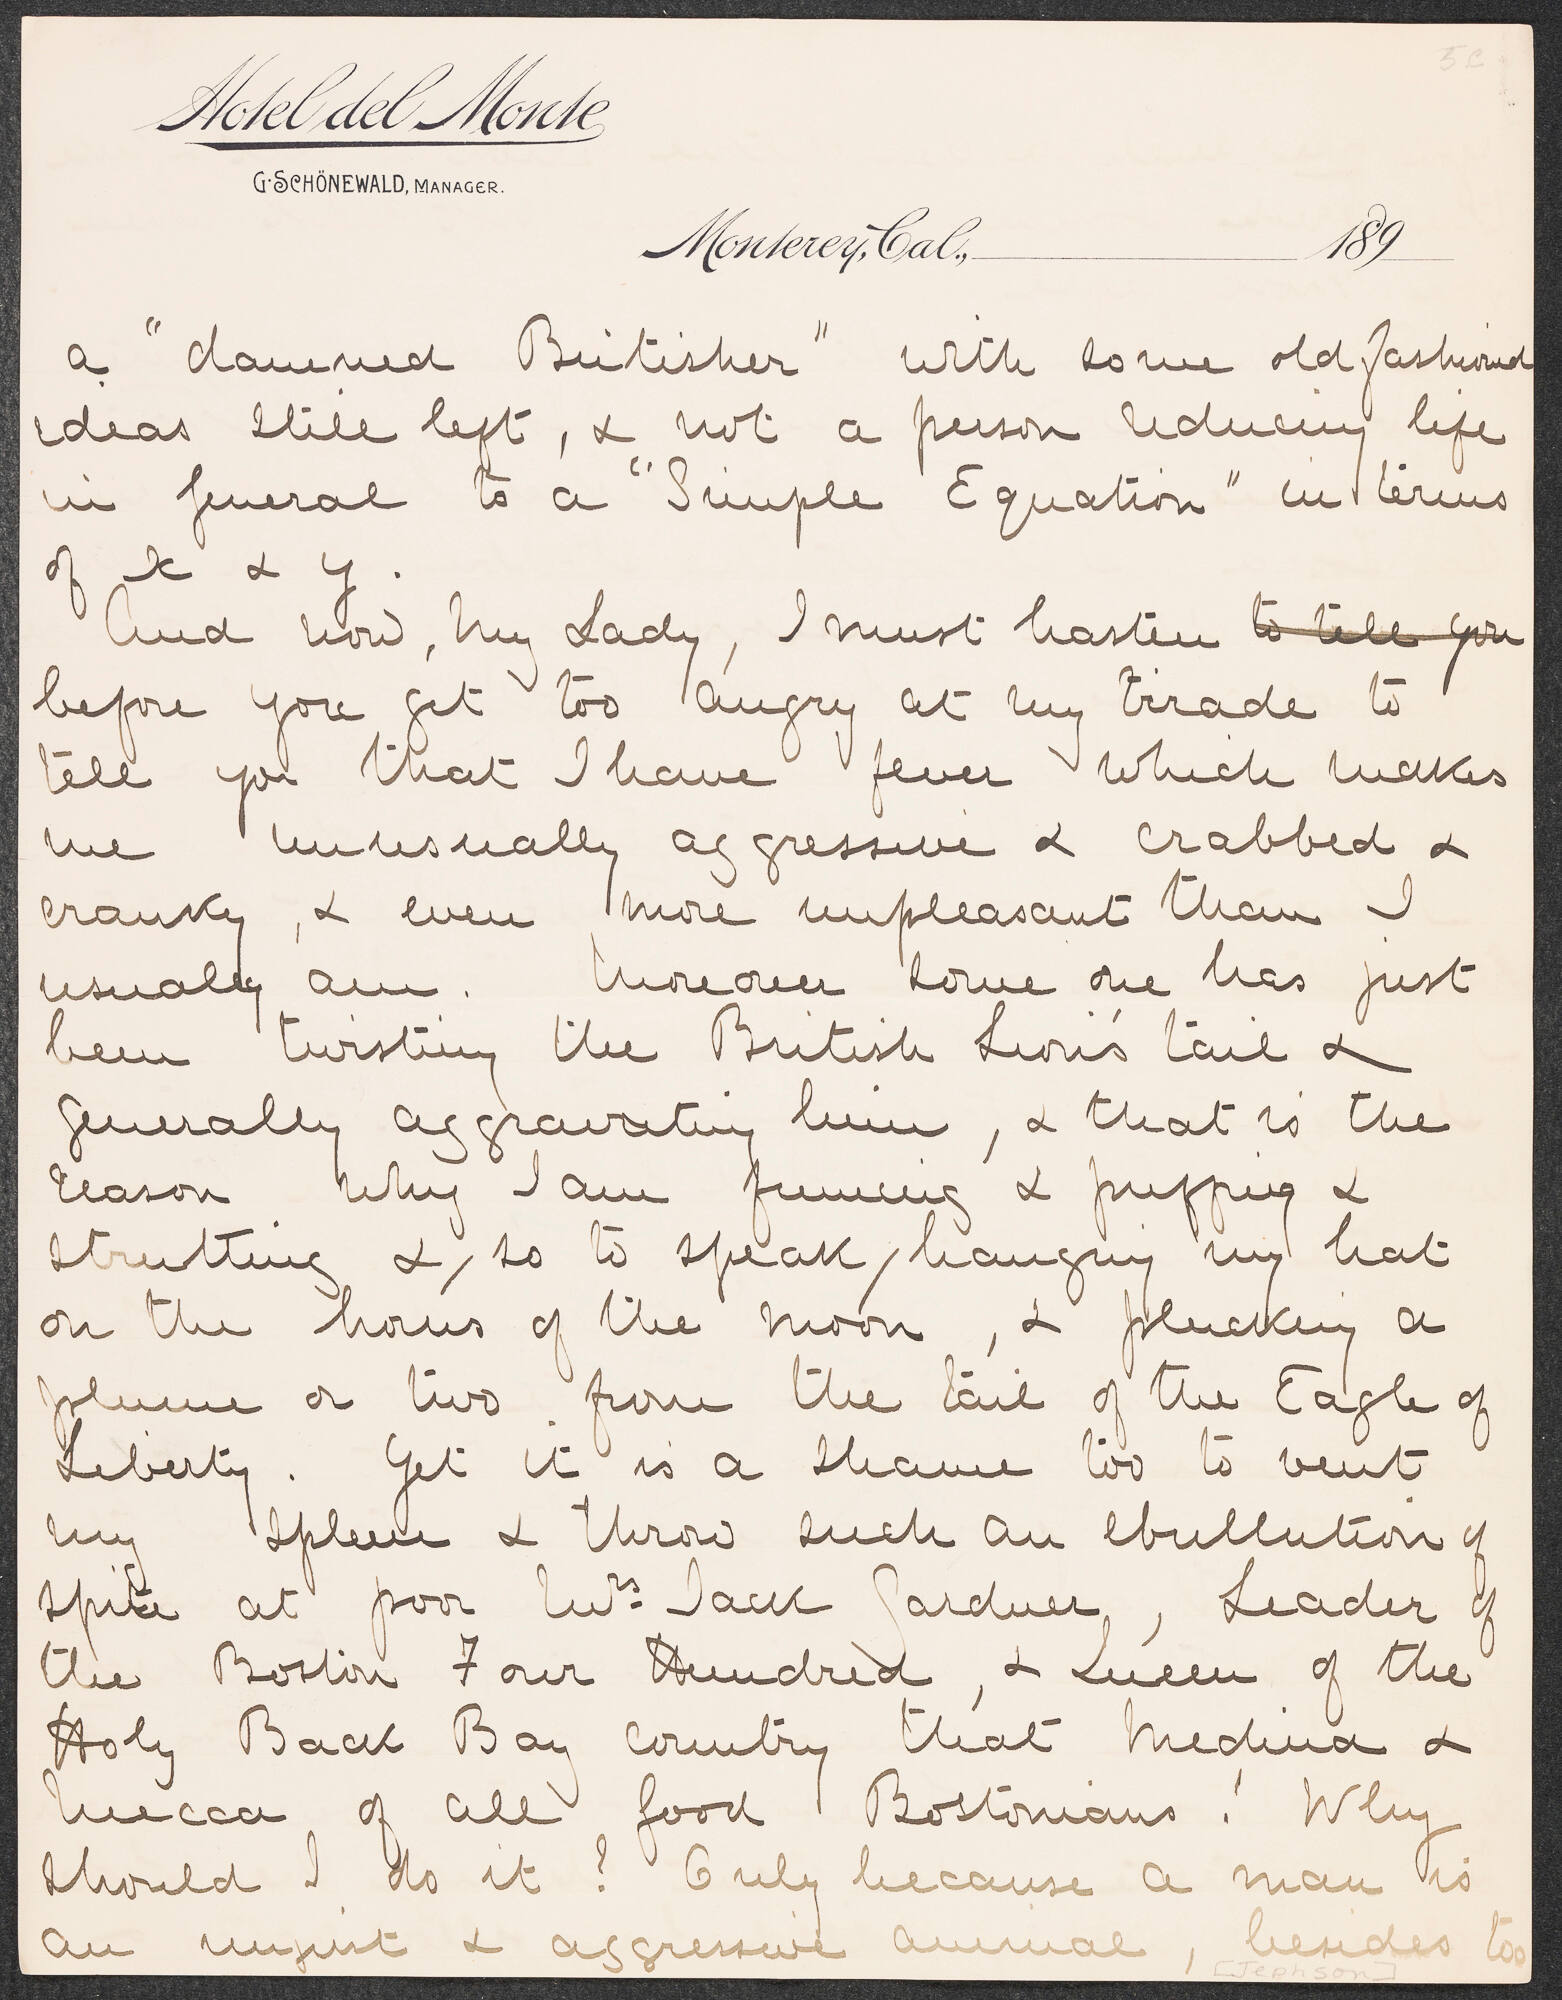 5c
Hotel del Monte
G. SCHÖNEWALD, MANAGER.
Monterey, Cal., 189
a "damned Britisher" with some old fashioned
ideas still left, & not a person reducing life
in general to a "Simple Equation" in terms
of x & y.
And now, my Lady, I must hasten to tell you
before you get too angry at my tirade to
tell you that I have fever which makes
me unusually aggressive & crabbed &
cranky, & even more unpleasant than I
usually am. Moreover some one has just
been twisting the British Lion's tail &
generally aggravating him, & that is the
reason why I am fuming & puffing &
strutting &, so to speak, hanging my hat
on the horns of the moon, & plucking a
plume or two from the tail of the Eagle of
Liberty. Yet it is a shame too to vent
my spleen & throw such an ebullution of
spite at poor Mrs. Jack Gardner, Leader of
the Boston Four Hundred, & Queen of the
Holy Back Bay country that Medina &
Mecca of all good Bostonians! Why
should I do it? Only because a man is
an unjust & aggressive animal, besides too
[Jephson]